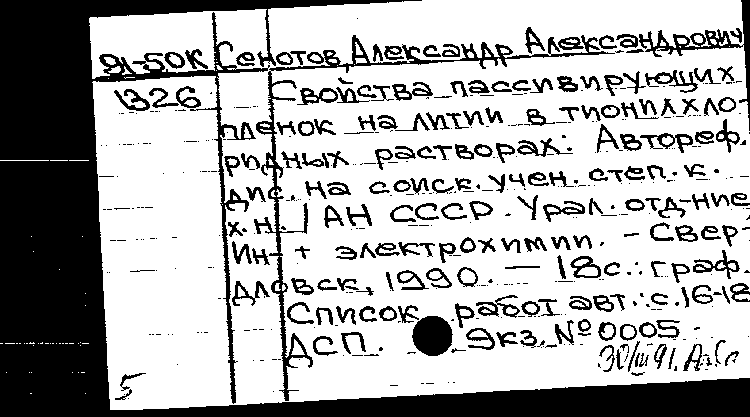 91-50К Сенотов, Александр Александрович
1326 Свойства пассивирующих
пленок на литии в тионилхло-
ридных растворах: Автореф.
дис. на соиск. учен. степ. к.
х.н. / АН СССР. Урал. отд-ние,
Ин-т электрохимии. - Свер-
дловск, 1990. — 18с.: граф.
Список работ авт.: с. 16-18
ДСП. Экз. № 0005.
30/III 91.
5